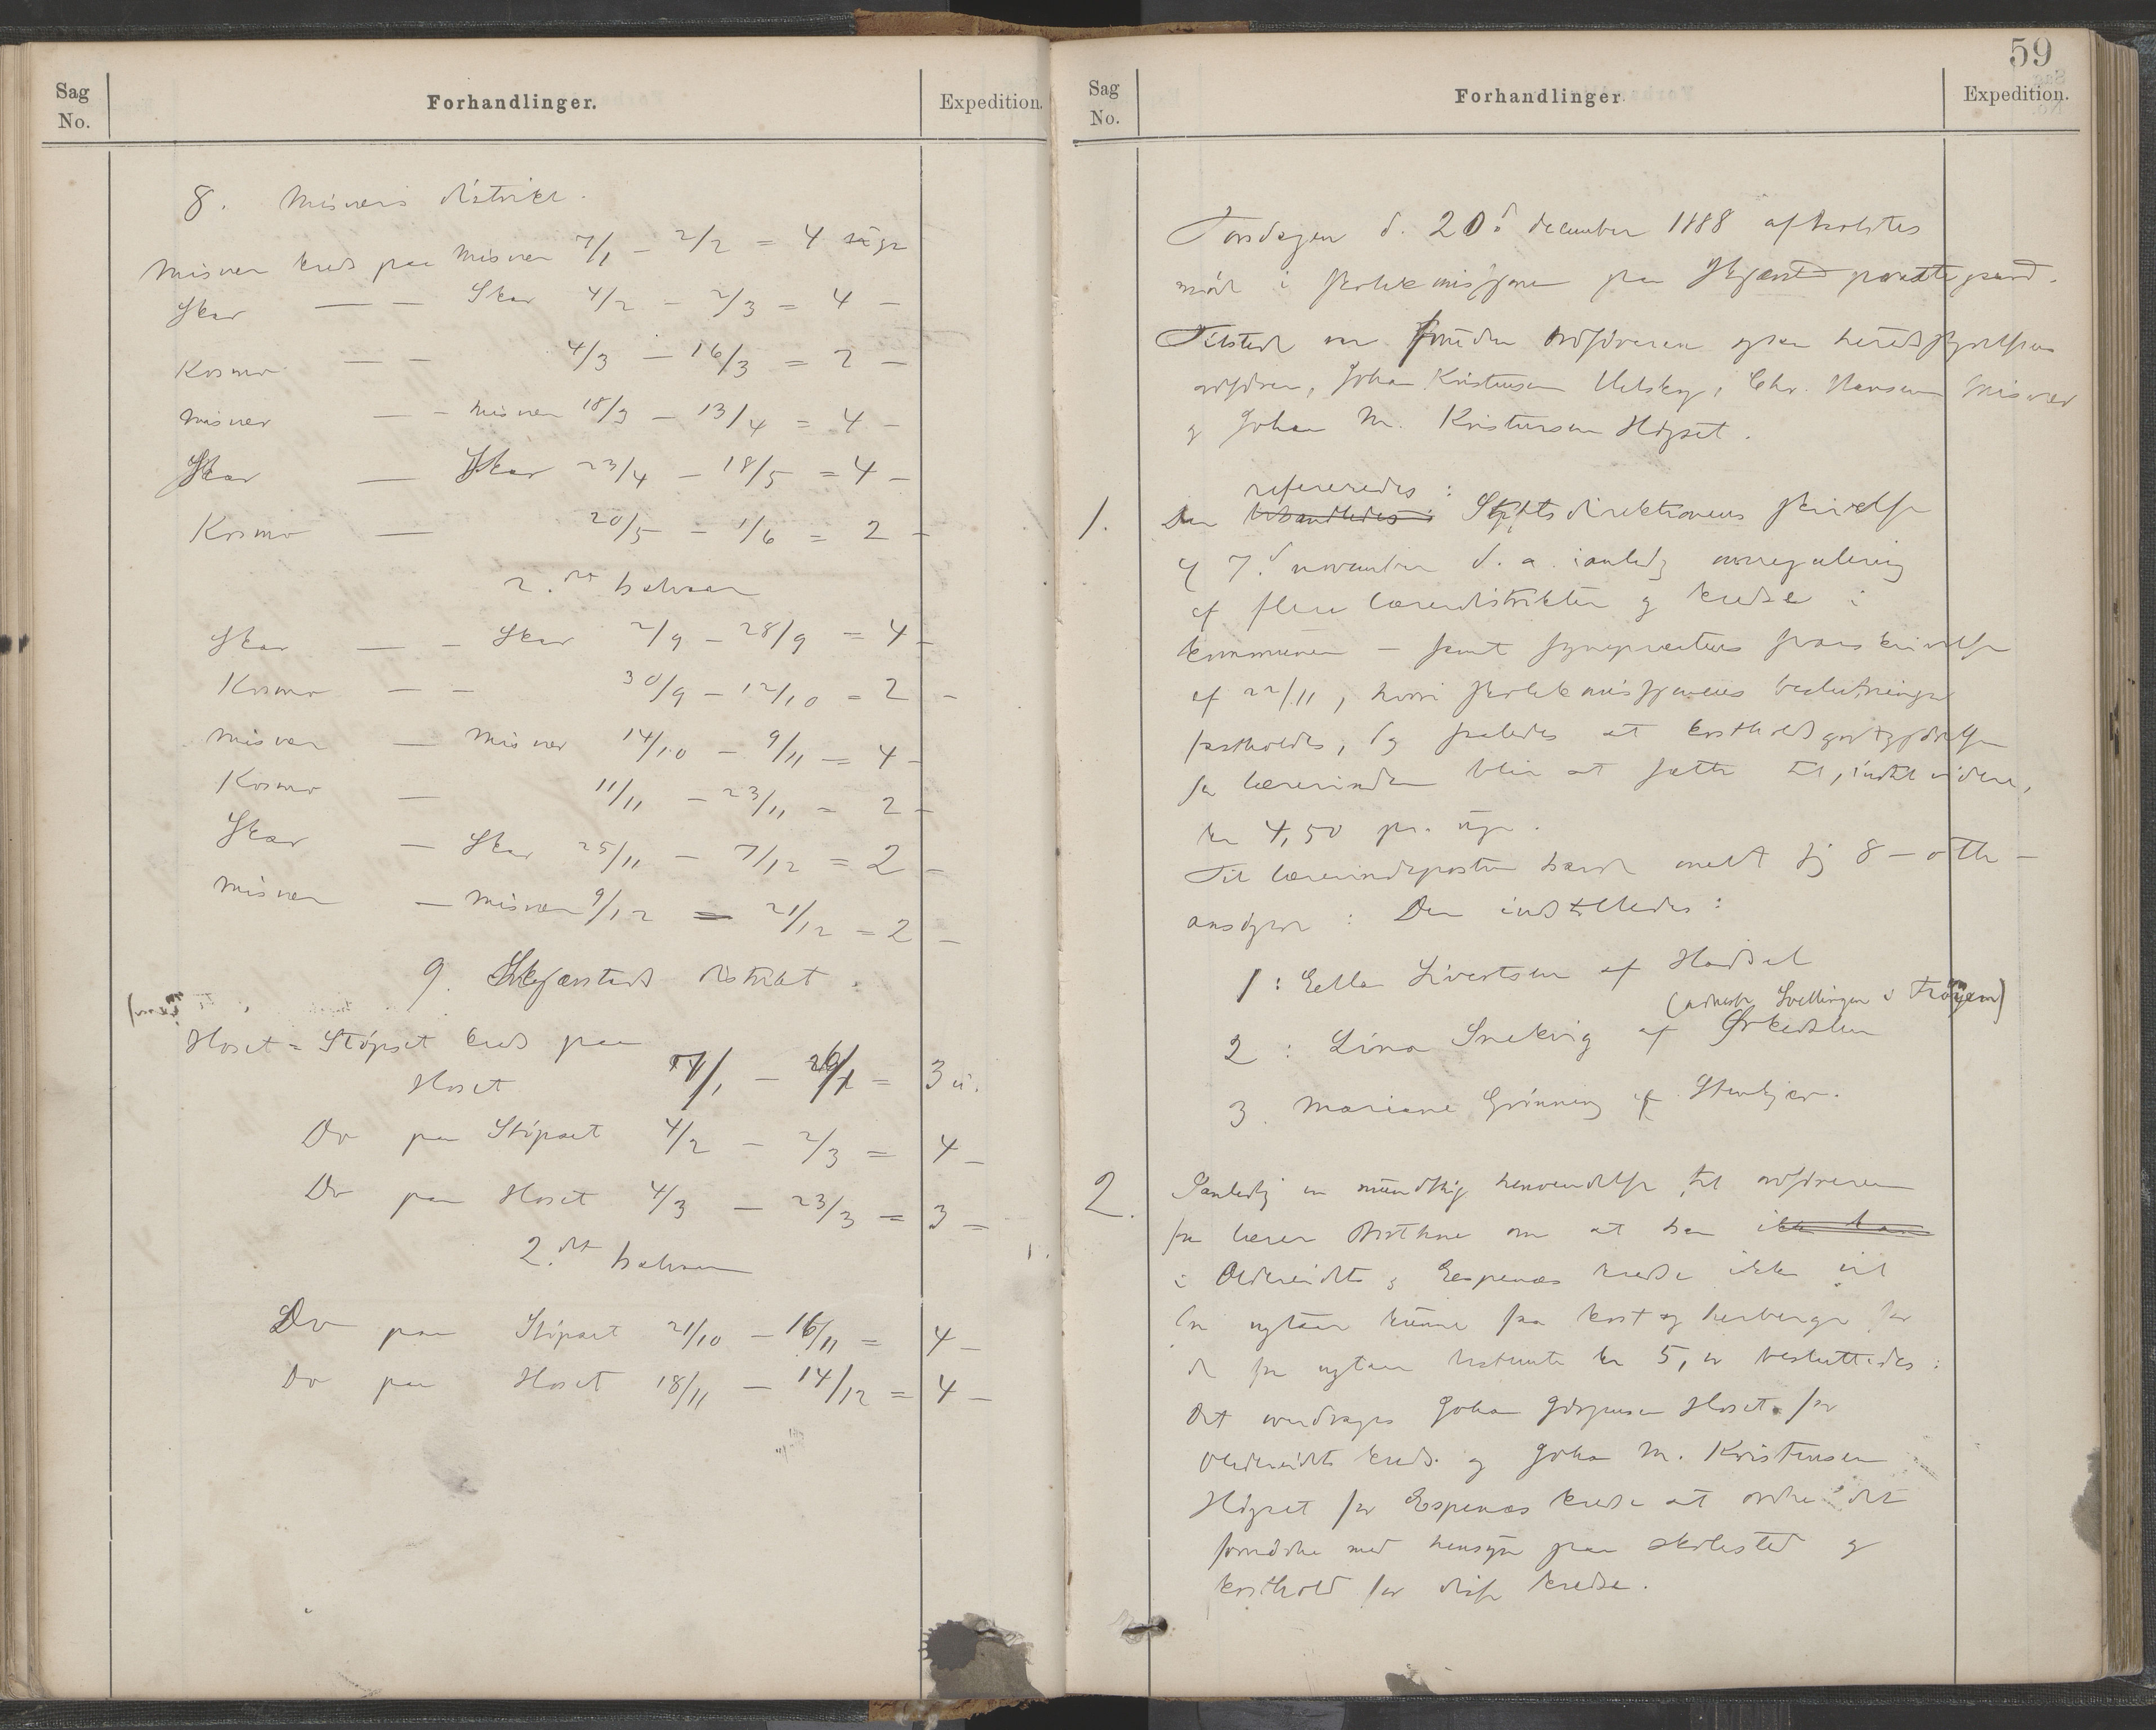 Sag
No.
Forhandlinger.
Expedition.
8. Misværs distrikt.
Misvær kreds paa Misvær 7/1 - 2/2 = 4 uger
Skar — - Skar 4/2 - 2/3 = 4 -
Kosmo — - 4/3 - 16/3 = 2 -
Misvær — - Misvær 18/3 - 13/4 = 4 -
Skar — Skar 23/4 - 18/5 = 4 -
Kosmo — 20/5 - 1/6 = 2 -
2.det halvaar
Skar — - Skar 2/9 - 28/9 = 4 -
Kosmo — - 30/9 - 12/10 = 2 -
Misvær — Misvær 14/10 - 9/11 = 4 -
Kosmo — 11/11 - 23/11 = 2 -
Skar — Skar 25/11 - 7/12 = 2 -
Misvær — Misvær 9/12 = 21/12 = 2 -
9. Skjerstads distrikt.
Hoset = Støpset kreds paa
Hoset = 3 u.
Do paa Støpset 4/2 - 2/3 = 4 -
Do paa Hoset 4/3 - 23/3 = 3 =
2.det halvaar
Do paa Støpset 21/10 - 16/11 = 4 -
Do paa Hoset 18/11 - 14/12 = 4 -
59
Sag
No.
Forhandlinger.
Expedition.
Torsdagen d. 20d december 1888 afholdtes
møde i skolekommissjonen paa Skjerstad prestegaard.
Tilstede var foruden ordføreren ogsaa heredsstyrelsens
ordfører, Johan Kristensen Ulelskog, Chr. Hansen Misvær
og Johan M. Kristensen Høgset.
refereredes :
1. Der behandledes : Stiftsdirektionens skrivelse
af 7.d november d. a. ianledng omregulering
af flere lærerdistrikter og kredse i
kommunen - samt sogneprestens svarskrivelse
af 22/11, hvori skolekommissjonens beslutninger
fastholdes, og saaledes at kostholdsgodtgjørelsen
for lærerinden blir at sætte til, indtil videre,
kr 4,50 pr. uge.
Til lærerindeposten havde meldt sig 8 - otte -
ansøgere : Der indstilledes :
1 : Ella Sivertsen af Hadsel
(adresse Svellingen i Frøyen)
2 : Lina Snekvig af Ørkedalen
3. Mariane Grønning af Stenkjær.
2. Ianledng en mundtlig henvendelse til ordføreren
fra lærer om at han ikke kan
i Oldereidets og Espenæs kredse ikke vil
for ugtaar kunne faa kost og herberge for
de for ugtaar bestemte kr 5, er besluttedes :
Det overdrages Johan Jørgensen Hoset for
Oldereidets kreds og Johan M. Kristensen
Høgset for Espenæs kreds at ordne det
fornødne med hensyn paa skolested og
kosthold for disse kredse.